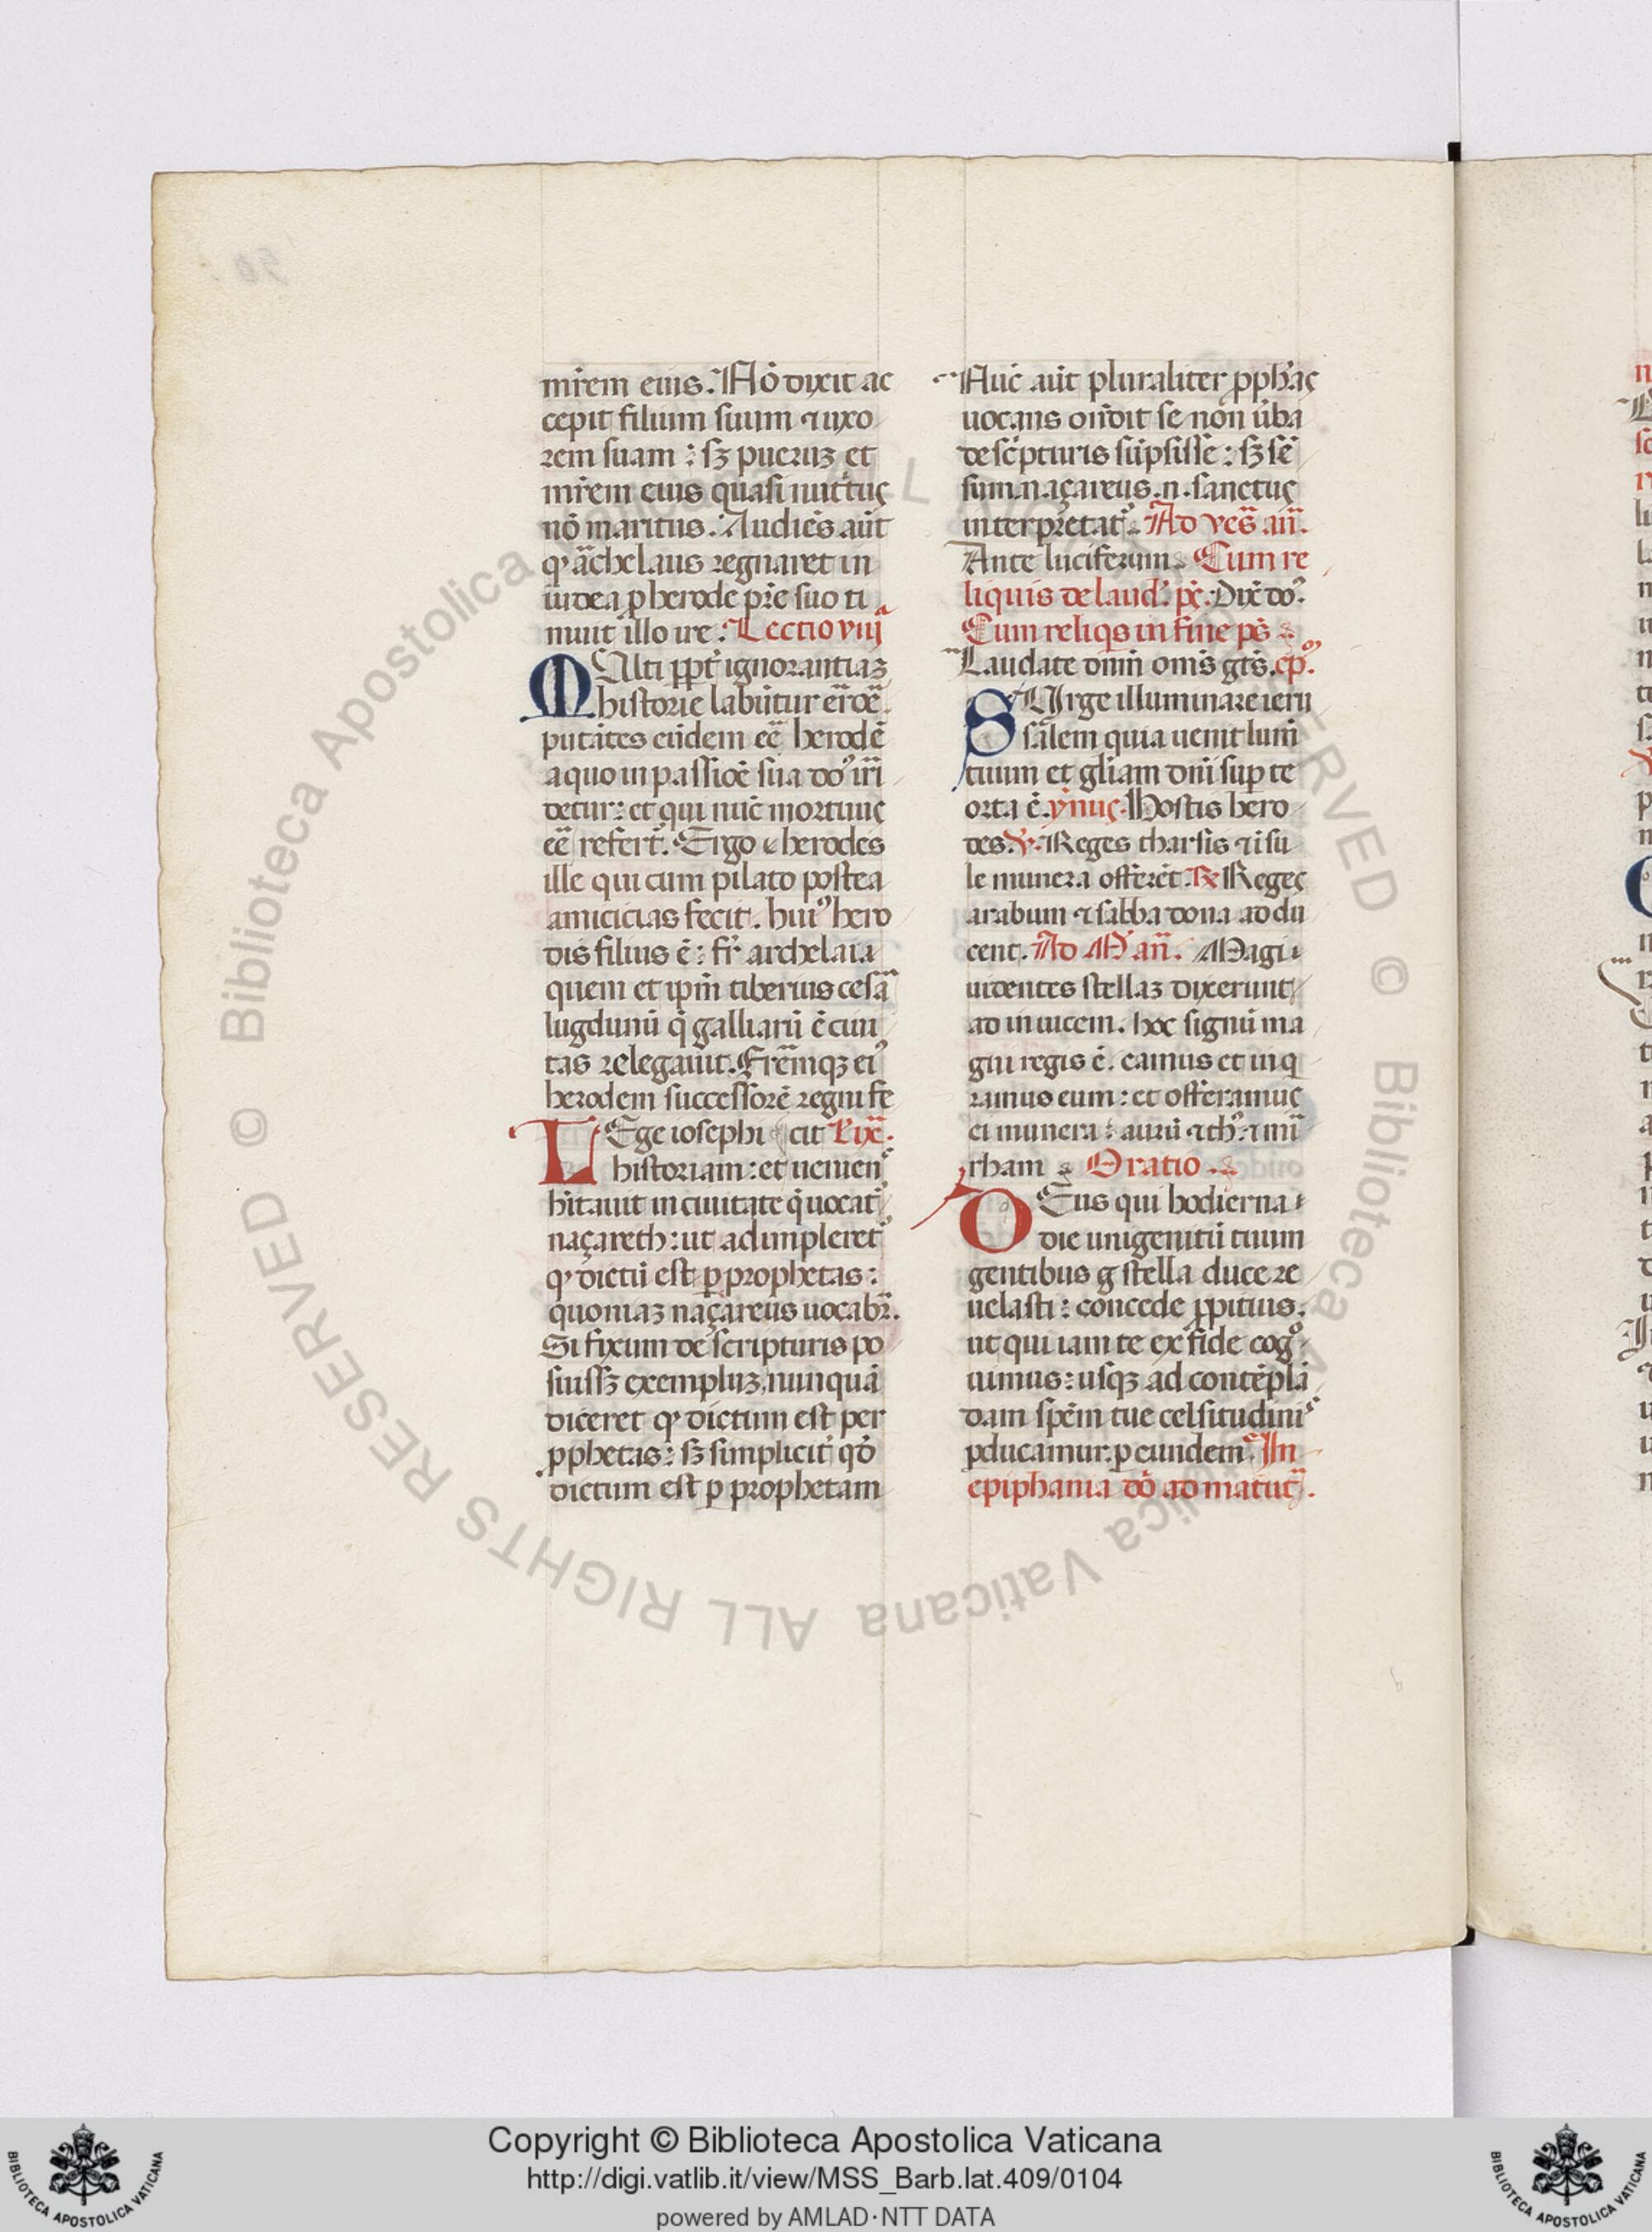 mr̄em eius. Nō dixit ac
cepit filium suum ⁊ uxo
rem suam : sꝫ pueruꝫ et
mr̄em eius quasi nut̄tuꝰ
nō maritus. Audiēs aūt
ꝙ ac̄helaus regnaret in
iudea ꝑ herode pr̄e suo ti
muit illo ire. Lectio viijᵃ
MUlti ꝓpt̄ ignorantiaꝫ
historie labūtur er̄oē.
putātes eūdem eē herodē
a quo in passiōē sua dō irri
detur : et qui nūc mortuuꝰ
eē refert̄. Ergo herodes
ille qui cum pilato postea
amicicias fecit. huiꝰ hero
dis filius ē : fr̄ archelai a
quem et ip̄m tiberius cesar̄
lugdunū q̄ galliarū ē ciui
tas relegauit. Fr̄emqꝫ eiꝰ
herodem successorē regni fe
LEge iosephi cit Eux̄.
historiam : et uenienˢ
hītauit in ciuitate q̄ uocat̄
naçareth : ut adimpleret̄
ꝙ dictū est ꝑ prophetas :
quoniaꝫ naçareus uocabr̄.
Si fixum de scripturis po
suissꝫ exempluꝫ, nunquā
diceret ꝙ dictum est per
ꝓphetas : sꝫ simplicit̄ qō
dictum est ꝑ prophetam
Nūc aūt pluraliter ꝓph̄aꝰ
uocans on̄dit se non ūba
de sc̄pturis sūpsisse : sꝫ sē
sum. naçareus .n. sanctuꝰ
interpretat̄. Ad ves̄ an̄.
Ante luciferum. Cum re
liquis de laud̄. pᷤ. Dix̄ dō.
Cum reliqs in fine pᷤ
Laudate dn̄m om̄s gt̄s. cap̄.
SUrge illuminare ieru
salem quia uenit lum̄
tuum et gl̄iam dn̄i suꝑ te
orta ē. ymnuꝰ. Hostis hero
des. ℣. Reges tharsis ⁊ isu
le munera offerēt. ℟ Regeꝰ
arabum ⁊ sabba dona addu
cent. Ad M̄ an̄. Magi
uidentes stellaꝫ dixerunt
ad inuicem. hoc signū ma
gni regis ē. eamus et inq̄
ramus eum : et offeramuꝰ
ei munera : aurū ⁊ thꝰ ⁊ mi
rham Oratio.
DEus qui hodierna
die unigenitū tuum
gentibus g stella duce re
uelasti : concede ꝓpitius.
ut qui iam te ex fide cogᵒ
uimus : usqꝫ ad contēplā
dam spēm tue celsitudiniˢ
ꝑducamur. ꝑ eundem. In
epiphania dō ad matut̄.
Copyright © Biblioteca Apostolica Vaticana
http://digi.vatlib.it/view/MSS_Barb.lat.409/0104
powered by AMLAD·NTT DATA
BIBLIOTECA APOSTOLICA VATICANA
BIBLIOTECA APOSTOLICA VATICANA
© Biblioteca Apostolica Vaticana ALL RIGHTS RESERVED